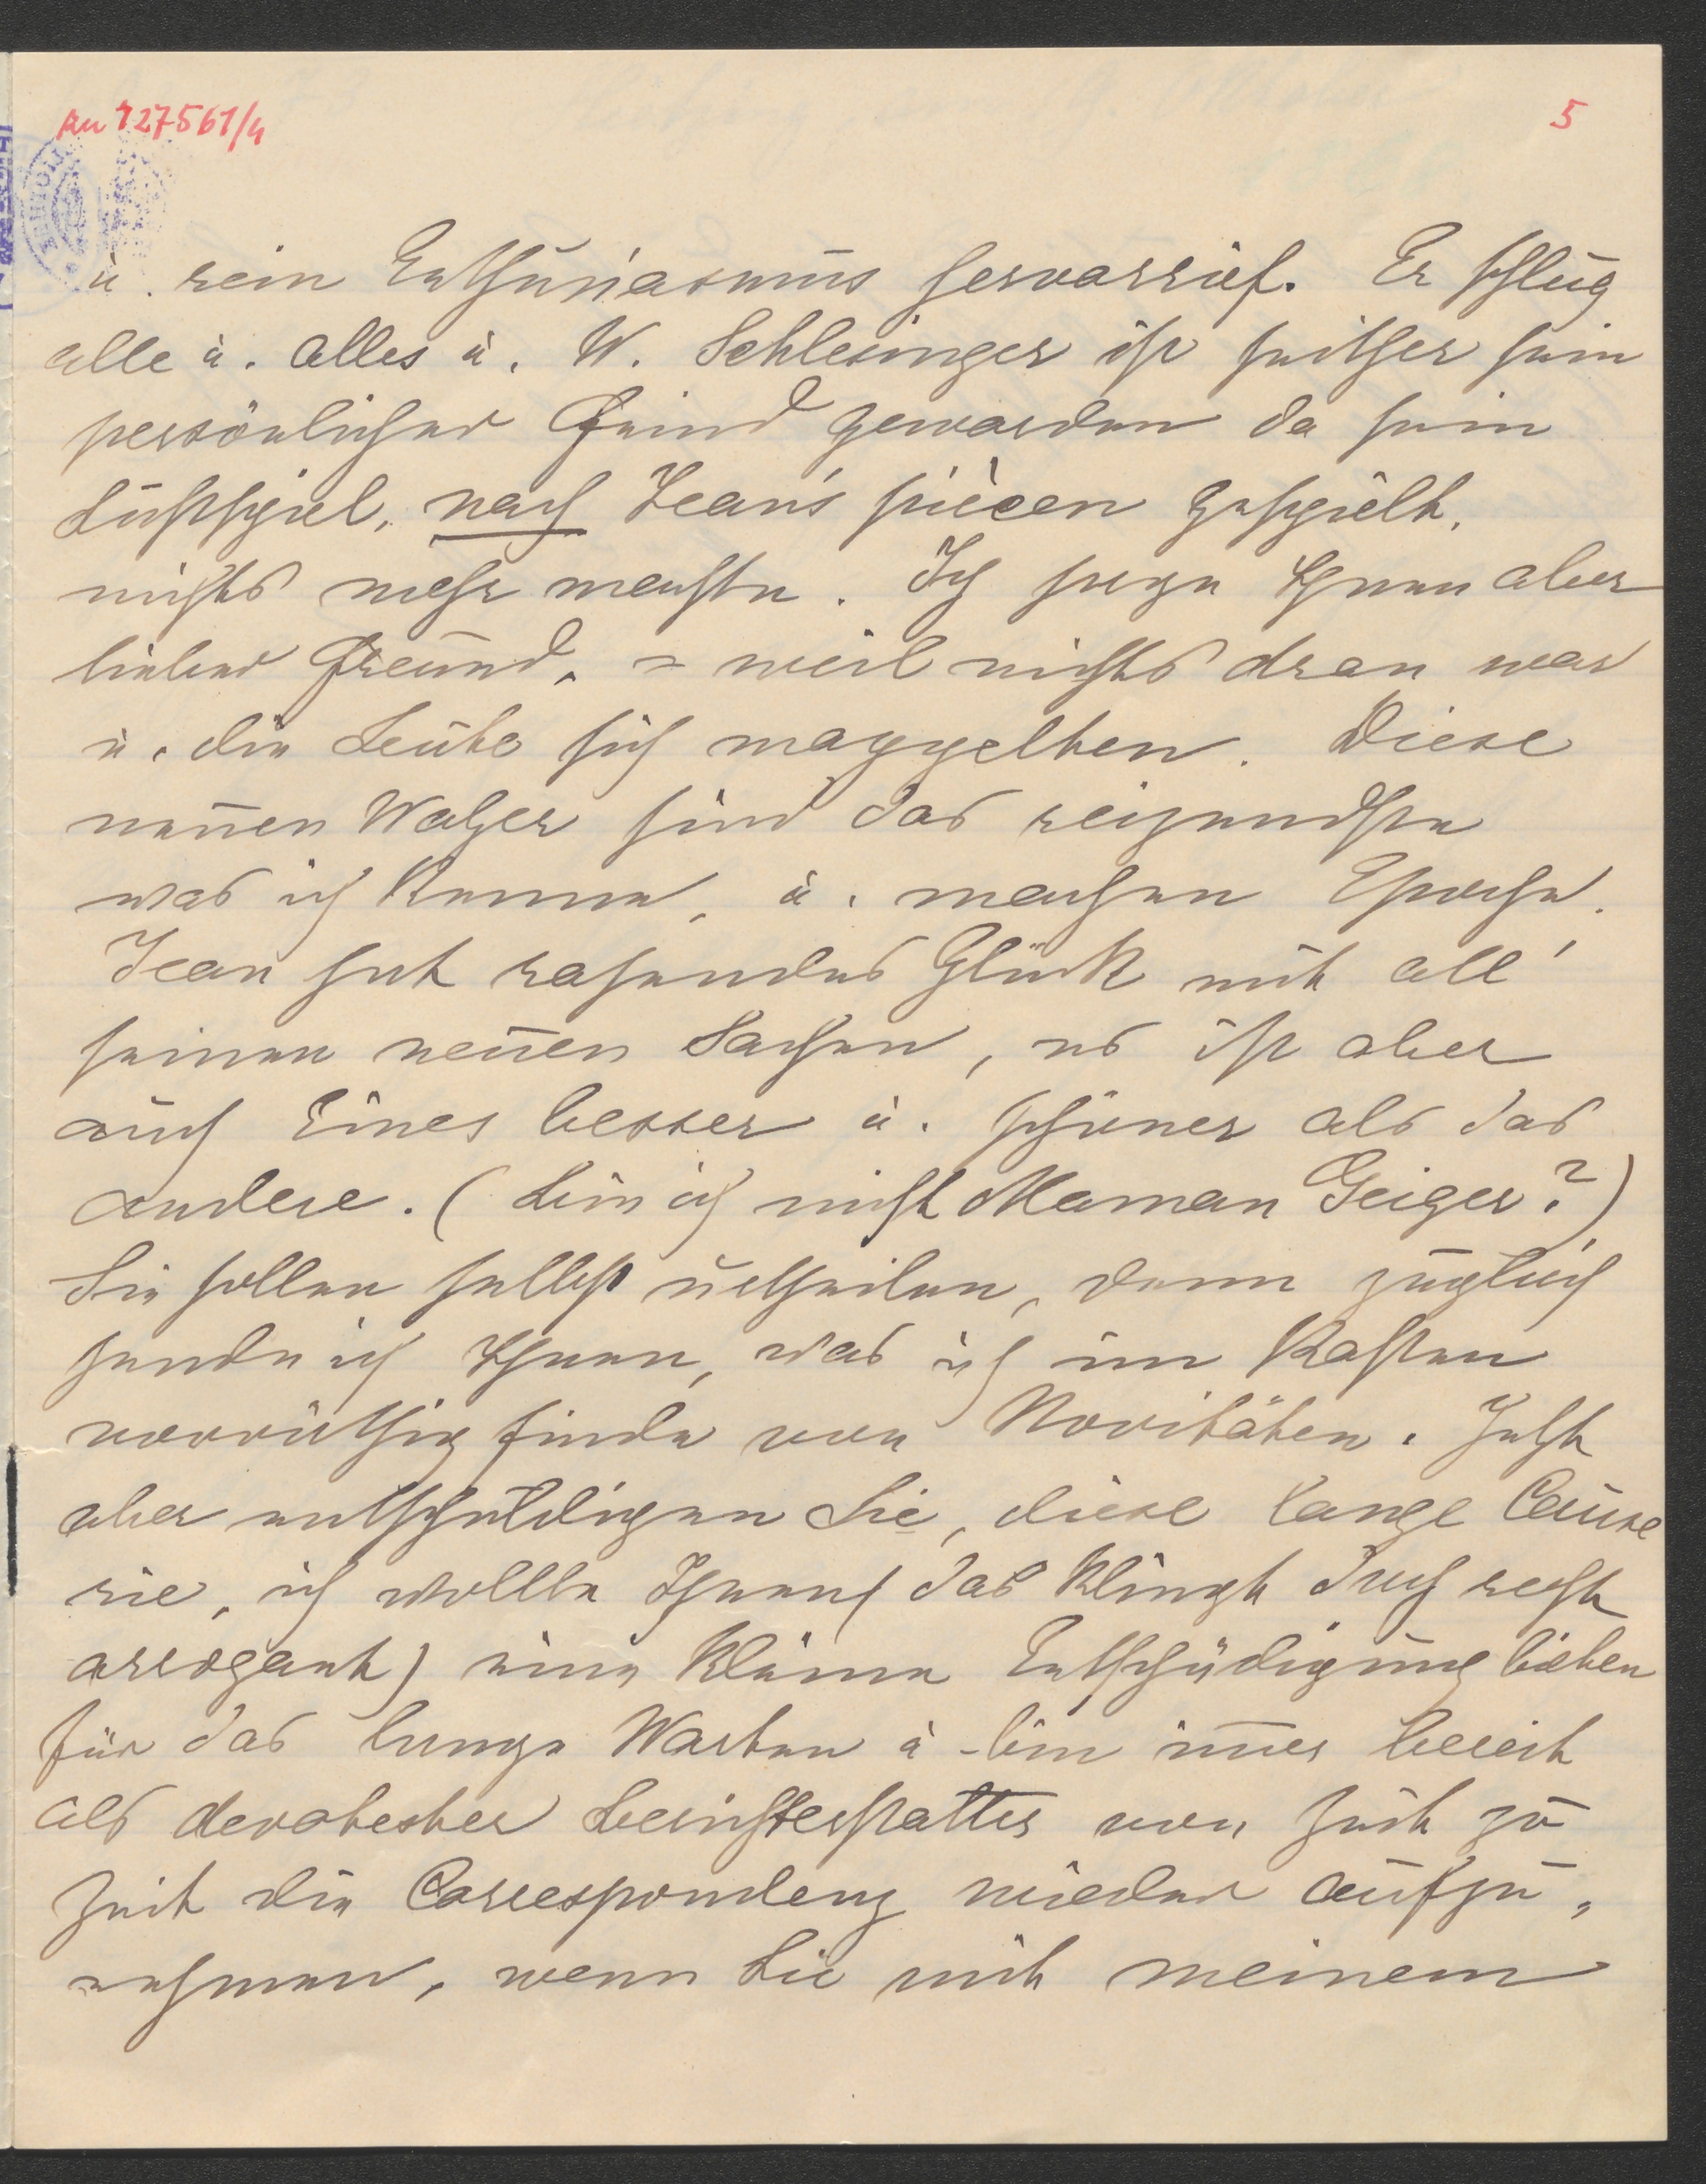 An 127561/4
5
u. rein Enthusiasmus hervorrief. Er schlug
alle u. alles u. W. Schlesinger ist seither sein
persönlicher Feind geworden da sein
Lustspiel, nach Jean's piècen gespielt,
nichts mehr machte. Ich sage Ihnen aber
lieber Freund, – weil nichts dran war
u. die Leute sich moppelten. Diese
neuen Walzer sind das reizendste
was ich kenne, u. machen Epoche.
Jean hat rasendes Glück mit all'
seinen neuen Sachen, es ist aber
auch Eines besser u. schöner als das
andere. (Bin ich nicht Maman Geiger?)
Sie sollen selbst urtheilen, denn zugleich
sende ich Ihnen, was ich im Kasten
vorräthig finde von Novitäten. Jetzt
aber entschuldigen Sie, diese lange Cause
rie, ich wollte Ihnen (das klingt doch recht
arrogant) eine kleine Entschädigung bieten
für das lange Warten u - bin immer bereit
als devotester Berichterstatter von Zeit zu
Zeit die Correspondenz wieder aufzu„
nehmen, wenn Sie mit meinem